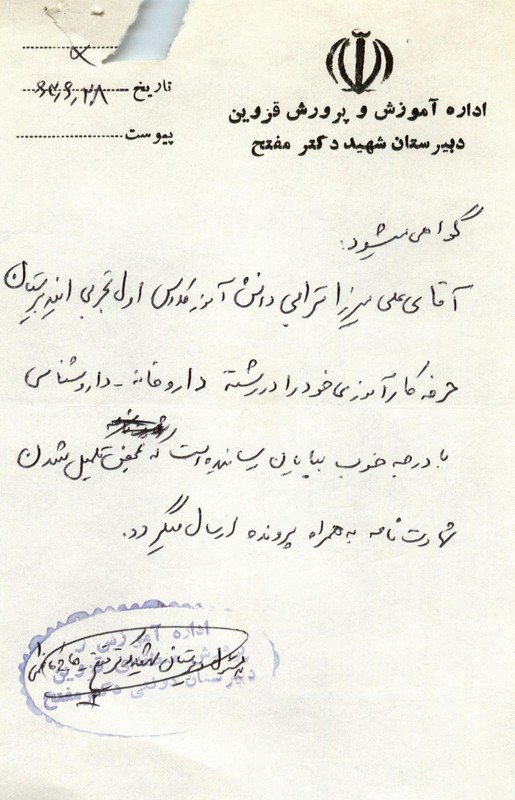 اداره آموزش و پرورش قزوین
دبیرستان شهید دکتر مفتح
تاریخ ۶۳،۶،۲۸
پیوست
گواهی میشود:
آقای علی میرزا ترابی دانش آموز کلاس اول تجربی این دبیرستان
حرفه کارآموزی خود را در رشته داروخانه - داروشناسی
با درجه خوب بپایان رسانیده است که بمحض تکمیل شدن
شهادت نامه به همراه پرونده ارسال میگردد.
دبیرستان شهید دکتر مفتح
اداره آموزش و
پرورش قزوین
دبیرستان دولتی دکتر مفتح